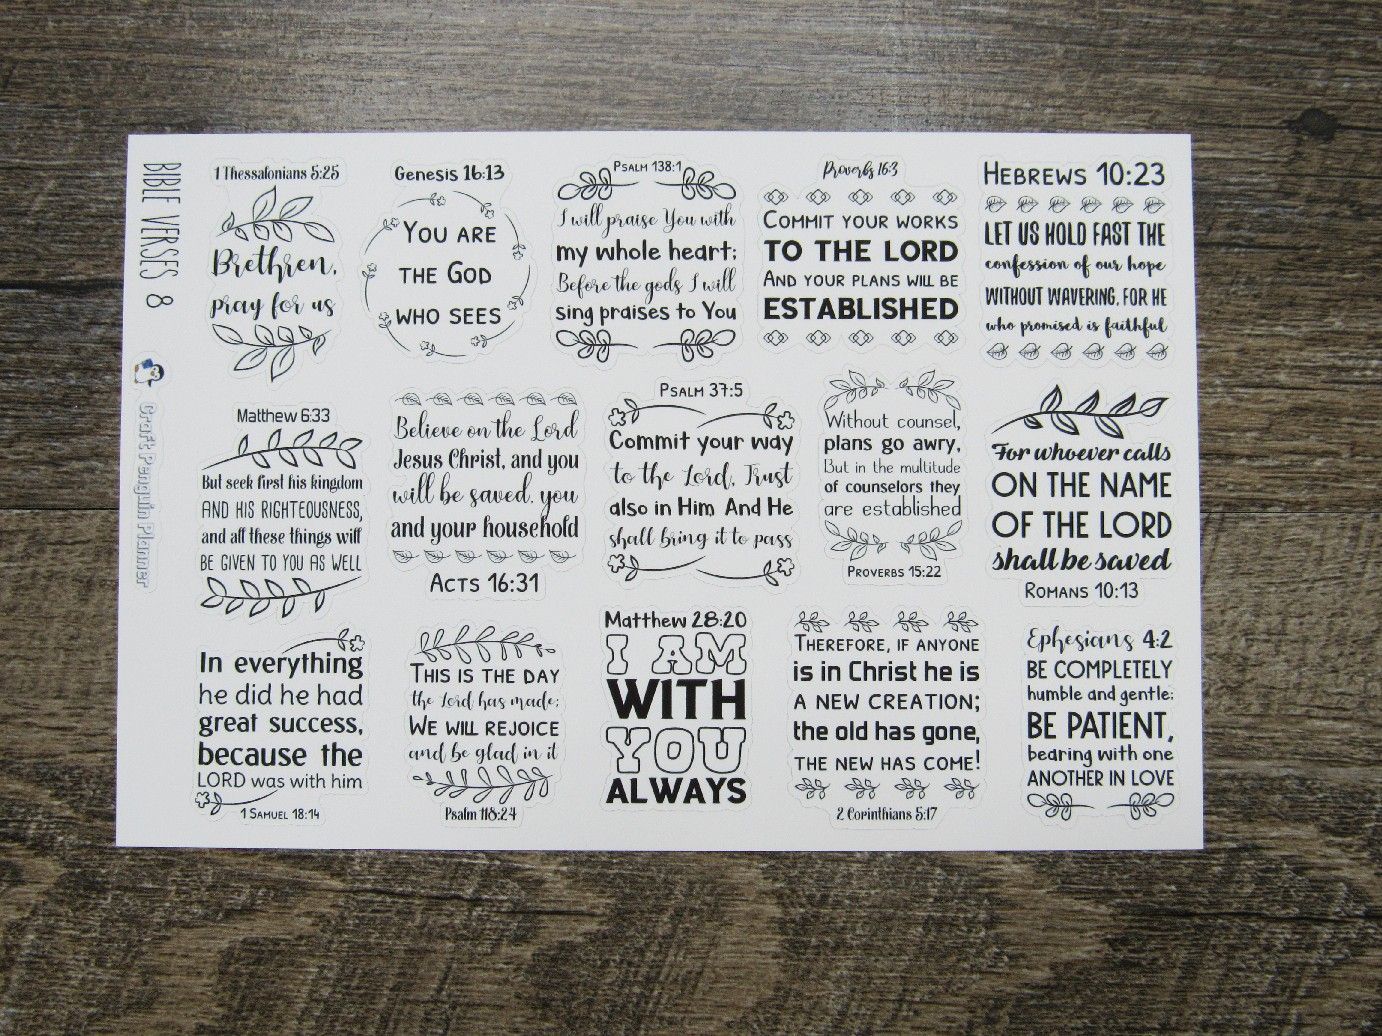 BIBLE VERSES 8
Craft Penguin Planner
1 Thessalonians 5:25
Brethren,
pray for us
Genesis 16:13
You are
the God
who sees
Psalm 138:1
I will praise You with
my whole heart;
Before the gods I will
sing praises to You
Proverbs 16:3
Commit your works
TO THE LORD
And your plans will be
ESTABLISHED
Hebrews 10:23
LET US HOLD FAST THE
confession of our hope
WITHOUT WAVERING, FOR HE
who promised is faithful
Matthew 6:33
But seek first his kingdom
AND HIS RIGHTEOUSNESS,
and all these things will
BE GIVEN TO YOU AS WELL
Believe on the Lord
Jesus Christ, and you
will be saved, you
and your household
Acts 16:31
Psalm 37:5
Commit your way
to the Lord, Trust
also in Him And He
shall bring it to pass
Without counsel,
plans go awry,
But in the multitude
of counselors they
are established
Proverbs 15:22
For whoever calls
ON THE NAME
OF THE LORD
shall be saved
Romans 10:13
In everything
he did he had
great success,
because the
LORD was with him
1 Samuel 18:14
This is the day
the Lord has made;
We will rejoice
and be glad in it
Psalm 118:24
Matthew 28:20
I AM
WITH
YOU
ALWAYS
Therefore, if anyone
is in Christ he is
a new creation;
the old has gone,
the new has come!
2 Corinthians 5:17
Ephesians 4:2
BE COMPLETELY
humble and gentle;
BE PATIENT,
bearing with one
ANOTHER IN LOVE